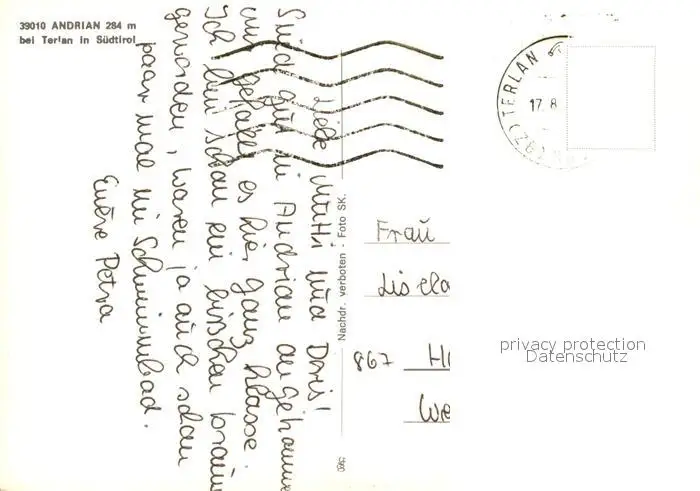 39010 ANDRIAN 284 m
bei Terlan in Südtirol
Liebe Mutti und Doris!
Sind gut in Andrian angekomme
und gefallen es hier ganz klasse.
Ich bin schon ein bißchen braun
geworden, waren ja auch schon
paar mal im Schwimmbad.
Euere Petra
Nachdr. verboten - Foto SK.
TERLAN
17.8
Frau
867
We
privacy protection
Datenschutz